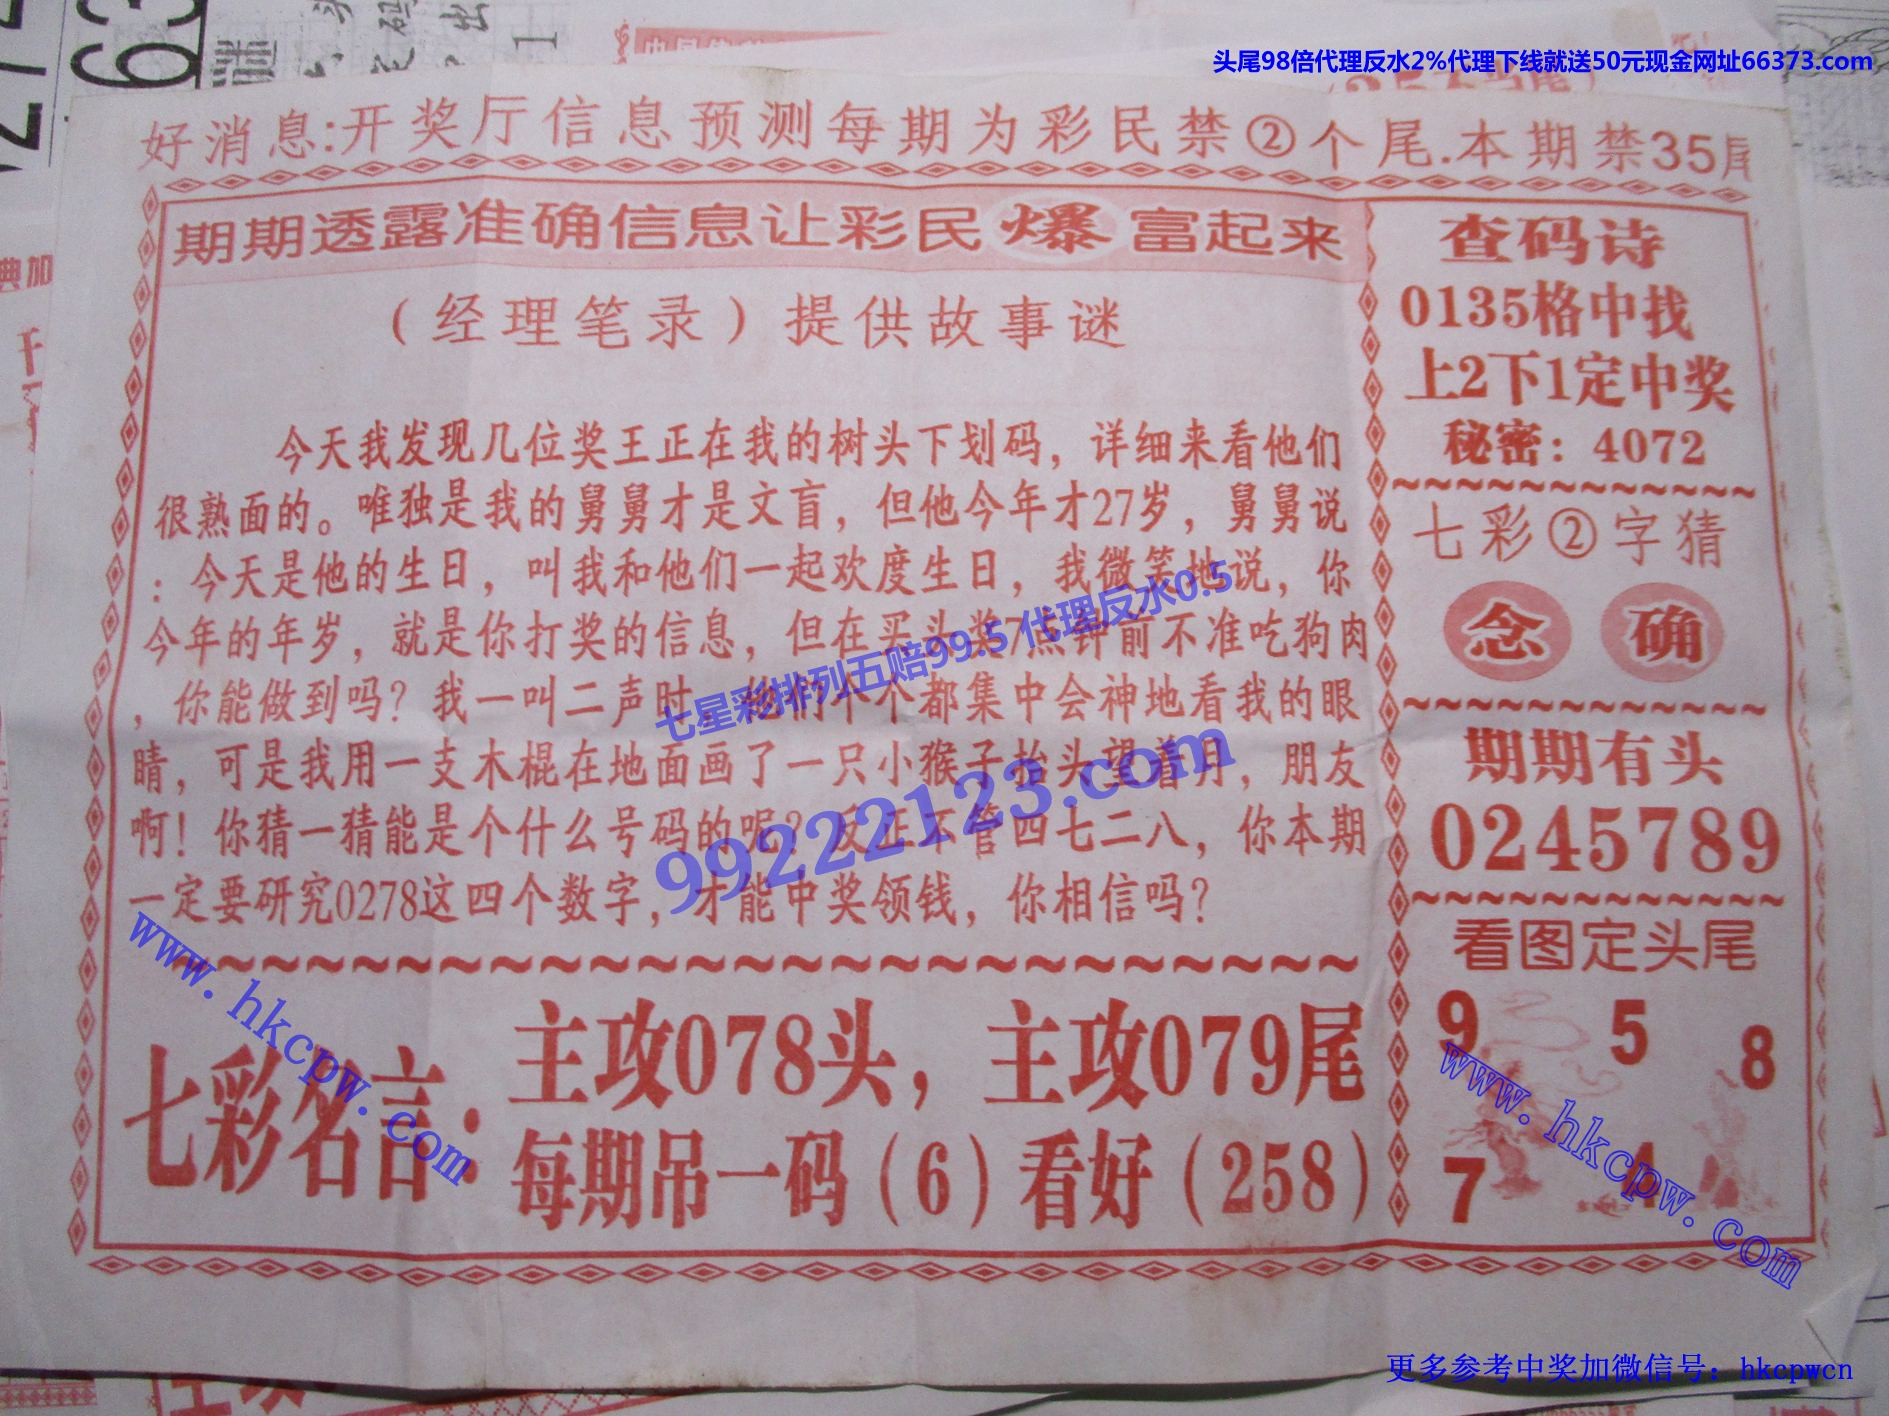 头尾98倍代理反水2%代理下线就送50元现金网址66373.com
好消息:开奖厅信息预测每期为彩民禁②个尾.本期禁35尾
期期透露准确信息让彩民爆富起来
（经理笔录）提供故事谜
今天我发现几位奖王正在我的树头下划码，详细来看他们
很熟面的。唯独是我的舅舅才是文盲，但他今年才27岁，舅舅说
：今天是他的生日，叫我和他们一起欢度生日，我微笑地说，你
今年的年岁，就是你打奖的信息，但在买头奖7点钟前不准吃狗肉
，你能做到吗？我一叫二声时，他们个个都集中会神地看我的眼
睛，可是我用一支木棍在地面画了一只小猴子抬头望着月，朋友
啊！你猜一猜能是个什么号码的呢？反正不管四七二八，你本期
一定要研究0278这四个数字，才能中奖领钱，你相信吗？
七彩名言：
主攻078头，主攻079尾
每期吊一码（6）看好（258）
查码诗
0135格中找
上2下1定中奖
秘密：4072
七彩②字猜
念 确
期期有头
0245789
看图定头尾
9 5 8
7 4
七星彩排列五赔99.5 代理反水0.5
99222123.com
www.hkcpw.com
www.hkcpw.com
更多参考中奖加微信号：hkcpwcn